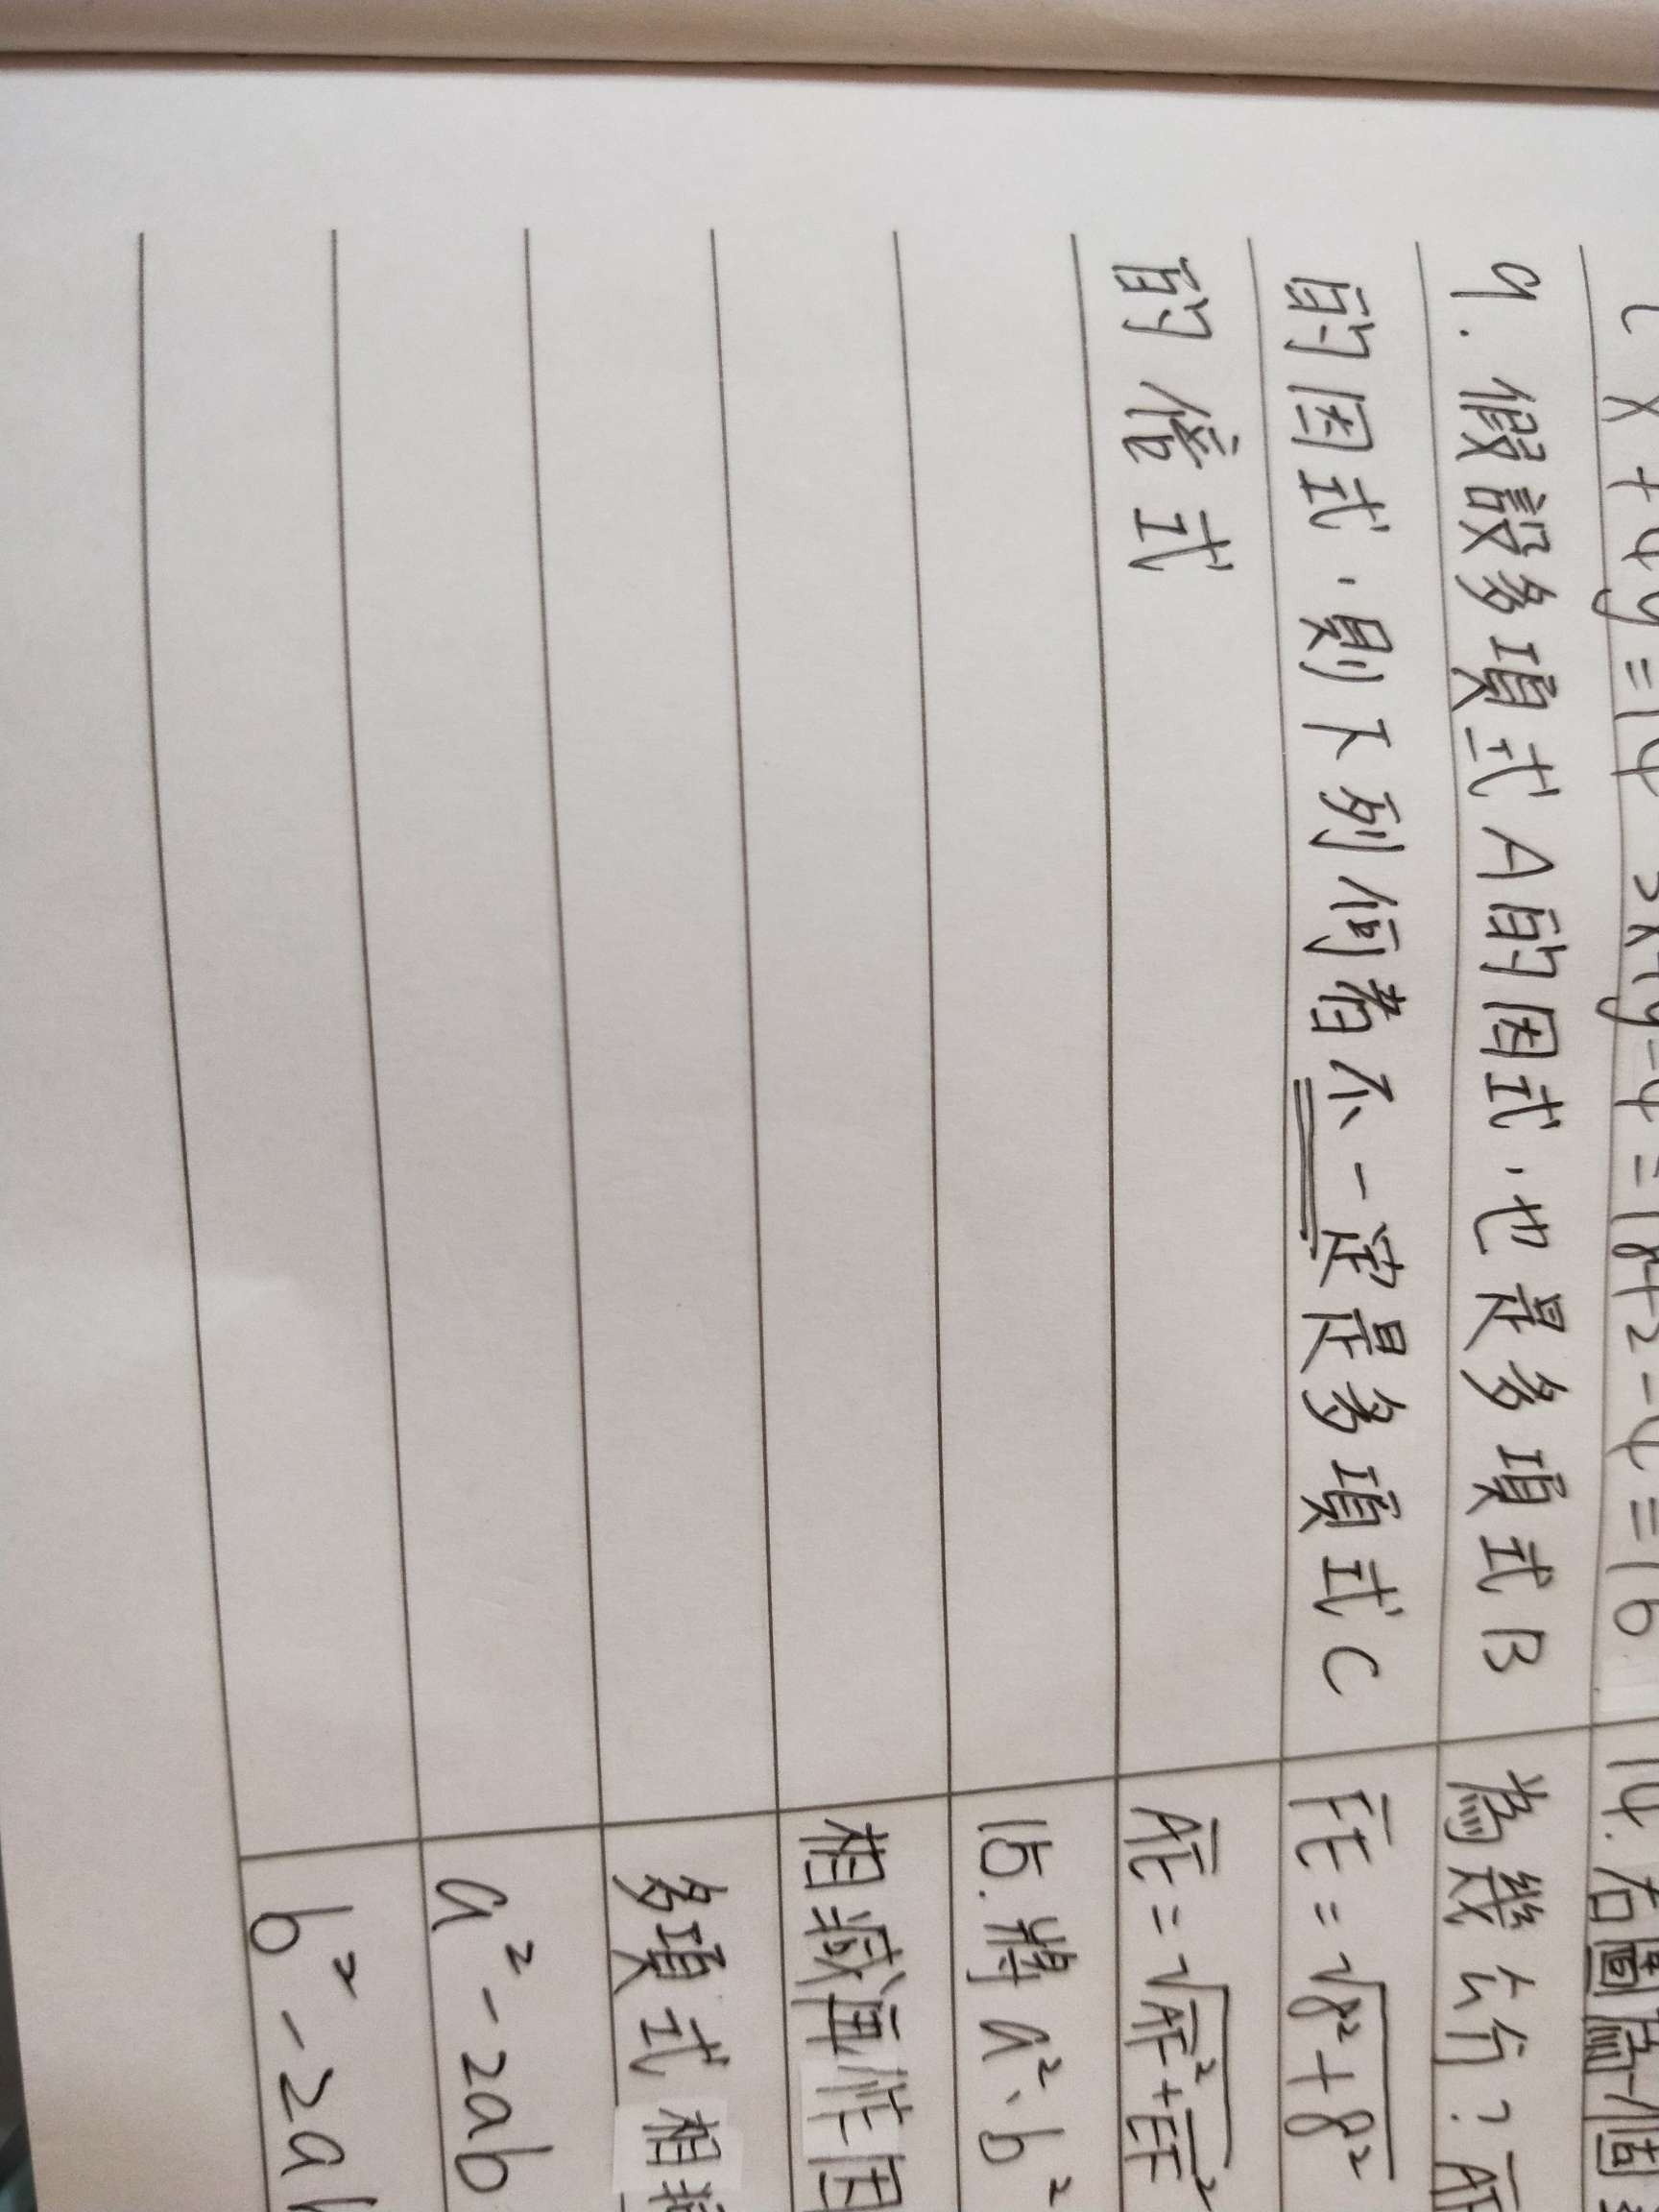 x+4y=14 3x+y-4=18+2-4=16
9. 假設多項式A的因式,也是多項式B
的因式,則下列何者不一定是多項式C
的倍式
14. 右圖
為幾公分?
FE=√8²+8²
AE=√AF²+EF²
15. 將a²、b²
相減再作因
多項式相
a²-2ab
b²-2a